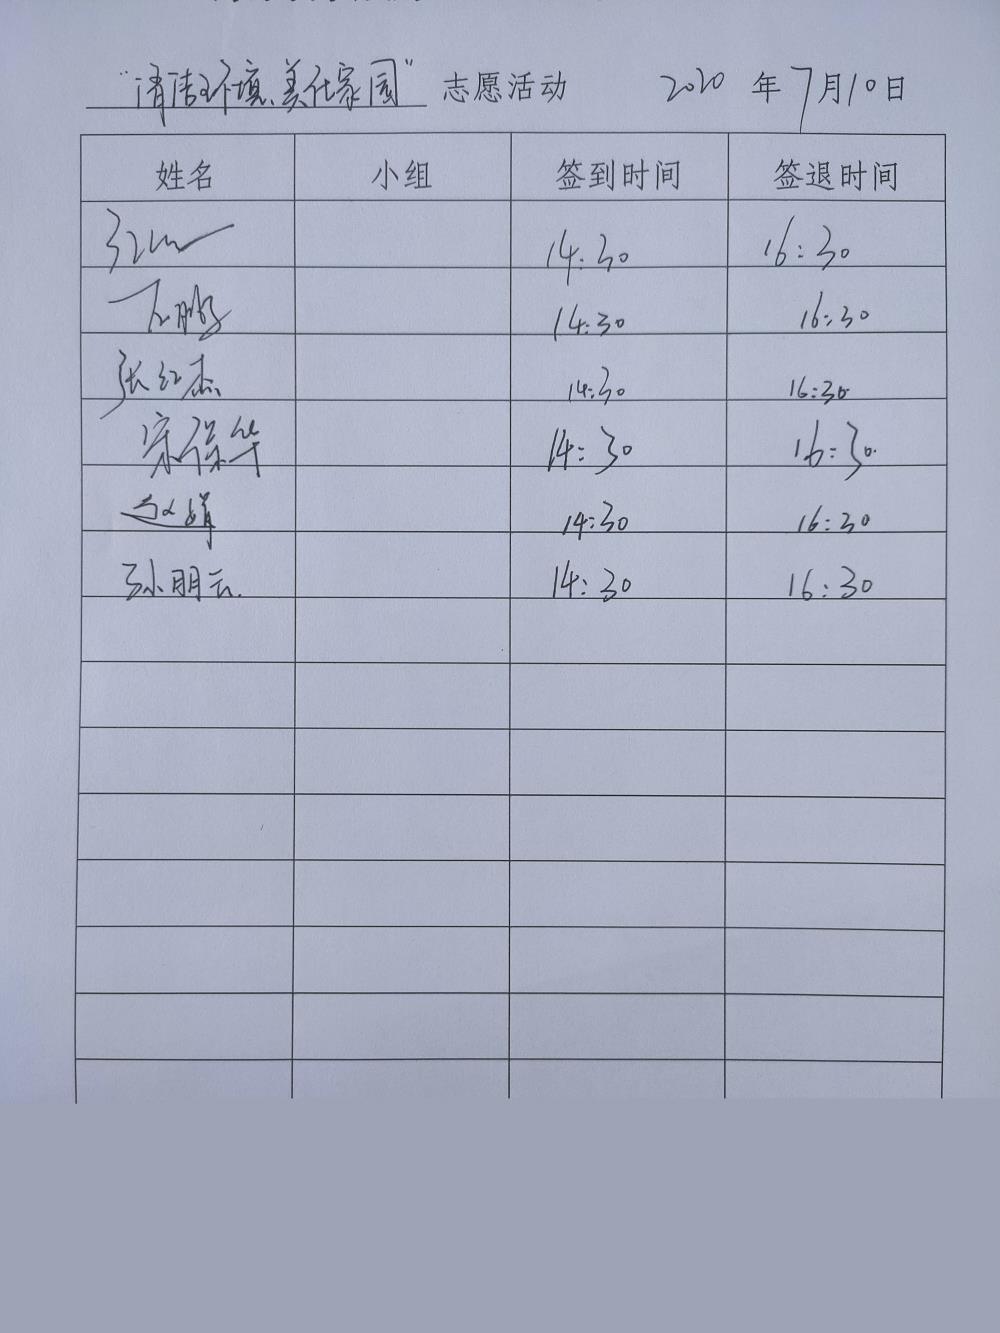 “清洁环境、美化家园” 志愿活动 2020 年7月10日
姓名 小组 签到时间 签退时间
14:30 16:30
14:30 16:30
张红杰 14:30 16:30
宋保华 14:30 16:30
赵娟 14:30 16:30
孙明云 14:30 16:30